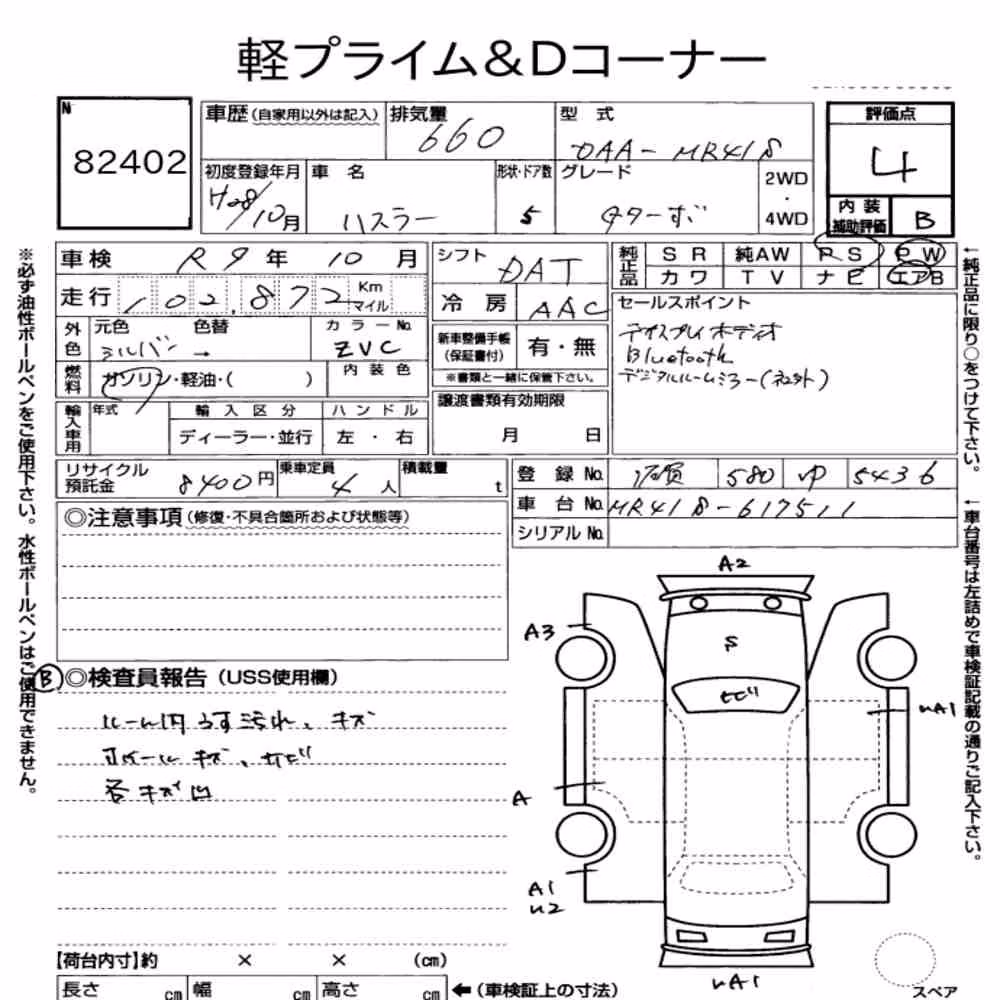 軽プライム&Dコーナー
N
82402
車歴 (自家用以外は記入)
排気量
660
型 式
DAA-MR41S
評価点
4
初度登録年月
H28/10月
車 名
ハスラー
形状・ドア数
5
グレード
2WD
・
4WD
内 装
補助評価
B
車検 R9年 10月
シフト
DAT
純正品
S R 純AW P S P W
カワ T V ナビ エアB
走行 102,872 Km マイル
冷 房 AAC
セールスポイント
ディスプレイオーディオ
Bluetooth
デジタルルームミラー(社外)
外色
元色 色替
シルバー →
カラーNo.
ZVC
新車整備手帳
(保証書付)
有・無
※書類と一緒に保管下さい。
燃料
ガソリン・軽油・( )
内 装 色
譲渡書類有効期限
月 日
輸入車用
年式
輸 入 区 分
ハ ン ド ル
ディーラー・並行
左 ・ 右
リサイクル
預託金
8400円
乗車定員
4人
積載量
t
登 録 No. 佐賀 580 ゆ 5436
車 台 No. MR41S-617511
シリアル No.
◎注意事項 (修復・不具合箇所および状態等)
B ◎検査員報告 (USS使用欄)
ルーム内うす汚れ、キズ
キズ、サビ
各キズ凹
A2
A3
S
とび
UA1
A
A1
U2
UA1
スペア
【荷台内寸】約 × × (cm)
長さ cm 幅 cm 高さ cm ←(車検証上の寸法)
※必ず油性ボールペンをご使用下さい。水性ボールペンはご使用できません。
←純正品に限り○をつけて下さい。
←車台番号は左詰めで車検証記載の通りご記入下さい。